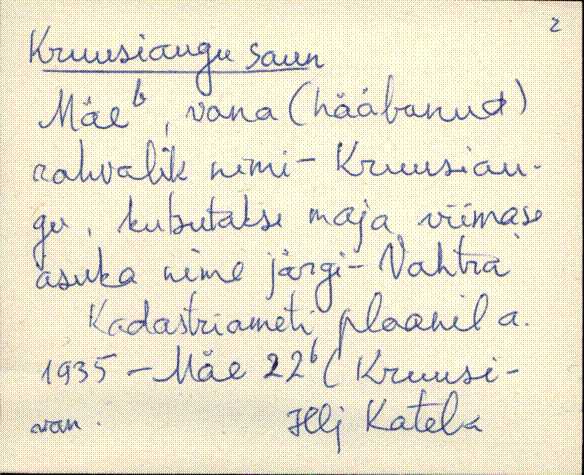 2
Kruusiaugu saun
Mäe b, vana (hääbanud)
rahvalik nimi - Kruusiau-
gu, kutsutakse maja viimase
asuka nime järgi - Vahtra
Kadastriameti plaanil a.
1935 - Mäe 22b (Kruusi-